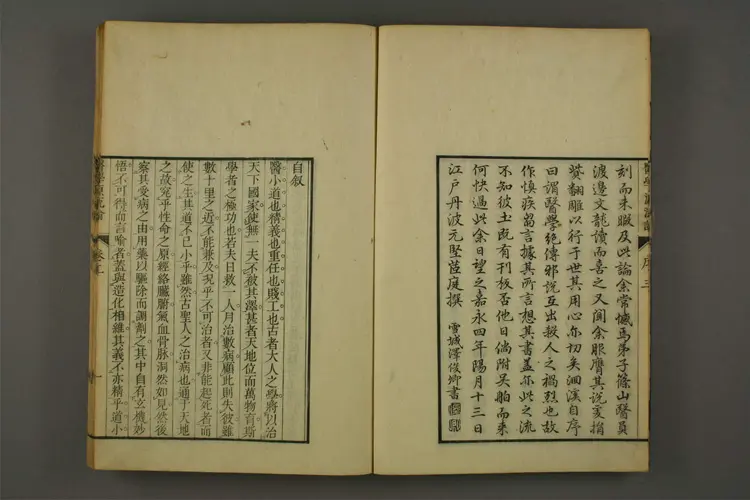 刻而未暇及此論余常憾焉弟子篠山醫員
渡邊文龍讀而喜之又聞余服膺其說爰捐
貲翻雕以行于世其用心亦切矣洄溪自序
曰謂醫學絕傳邪說互出殺人之禍烈也故
作慎疾芻言據其所言想其書盖亦此之流
不知彼土既有刊板否他日倘附吴舶而来
何快過此余日望之嘉永四年陽月十三日
江戶丹波元堅茝庭撰
雪城澤俊卿書
醫學源流論
序
三
自叙
醫小道也精義也重任也賤工也古者大人之學將以治
天下國家使無一夫不被其澤甚者天地位而萬物育斯
學者之極功也若夫日救一人月治數病顧此則失彼雖
數十里之近不能兼及況乎不可治者又非能起死者而
使之生其道不已小乎雖然古聖人之治病也通于天地
之故究乎性命之原經絡臟腑氣血骨脉洞然如見然後
察其受病之由用藥以驅除而調劑之其中自有玄機妙
悟不可得而言喻者蓋與造化相維其義不亦精乎道小
醫學源流論
一